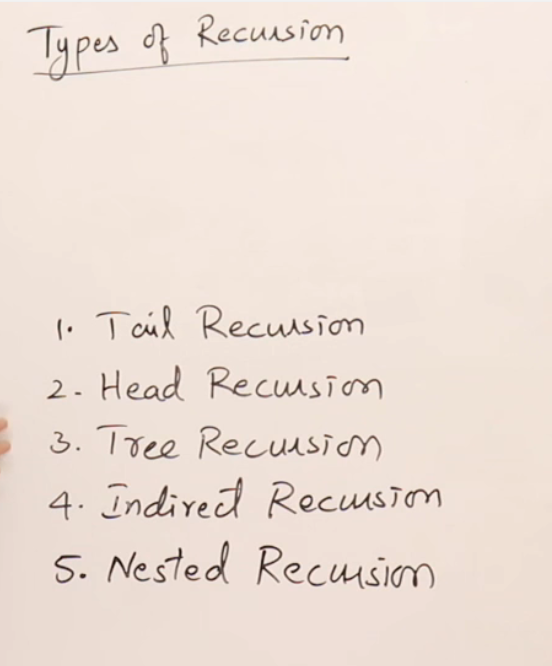 Types of Recursion
1. Tail Recursion
2. Head Recursion
3. Tree Recursion
4. Indirect Recursion
5. Nested Recursion